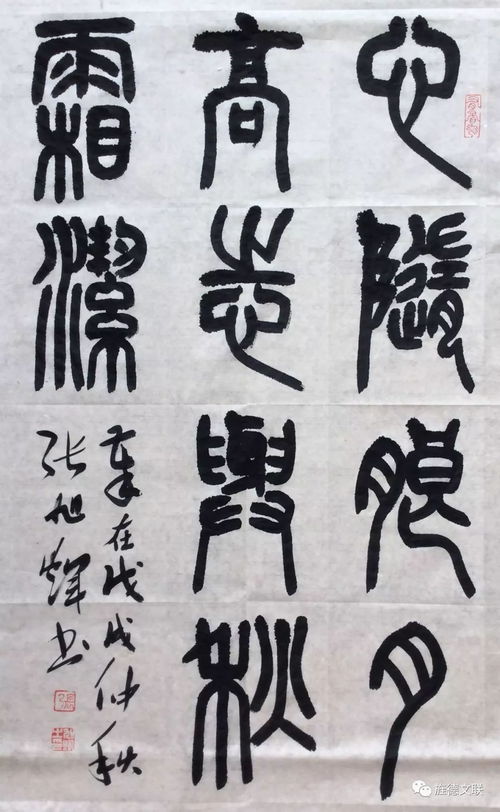 心隨朗月
高志與秋
霜潔
歲在戊戌仲秋
张旭輝书
旌德文联